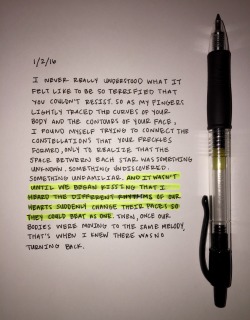 1/2/16
I NEVER REALLY UNDERSTOOD WHAT IT
FELT LIKE TO BE SO TERRIFIED THAT
YOU COULDN'T RESIST. SO AS MY FINGERS
LIGHTLY TRACED THE CURVES OF YOUR
BODY AND THE CONTOURS OF YOUR FACE,
I FOUND MYSELF TRYING TO CONNECT THE
CONSTELLATIONS THAT YOUR FRECKLES
FORMED, ONLY TO REALIZE THAT THE
SPACE BETWEEN EACH STAR WAS SOMETHING
UNKNOWN. SOMETHING UNDISCOVERED.
SOMETHING UNFAMILIAR. AND IT WASN'T
UNTIL WE BEGAN KISSING THAT I
HEARD THE DIFFERENT RHYTHMS OF OUR
HEARTS SUDDENLY CHANGE THEIR PACES SO
THEY COULD BEAT AS ONE. THEN, ONCE OUR
BODIES WERE MOVING TO THE SAME MELODY,
THAT'S WHEN I KNEW THERE WAS NO
TURNING BACK.